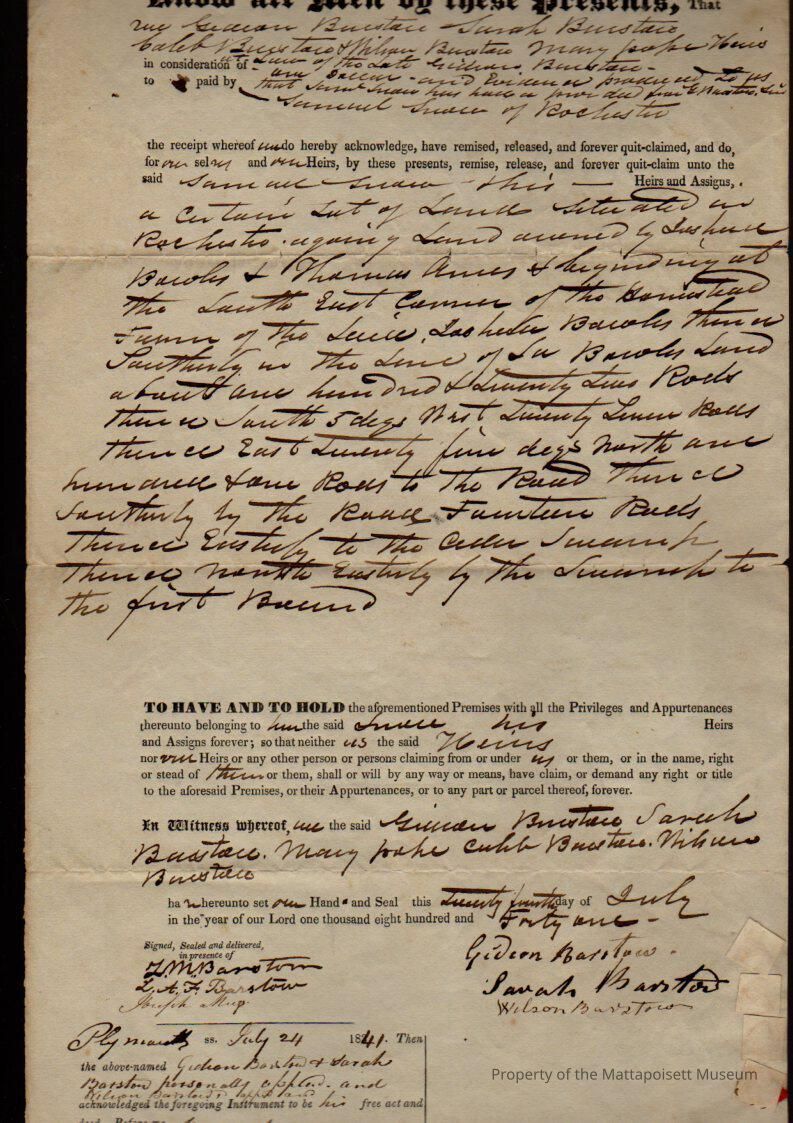 Know all Men by these Presents, That
we Gideon Barstow Sarah Barstow
Caleb Barstow & Wilson Barstow Mary pope Heirs
in consideration of Law of the Late Gideon Barstow
to paid by one Dollar and Evidence produced to us
that Saml Snow has had a
Samuel Snow of Rochester
the receipt whereof we do hereby acknowledge, have remised, released, and forever quit-claimed, and do,
for our selves and our Heirs, by these presents, remise, release, and forever quit-claim unto the
said Samuel Snow his Heirs and Assigns,
a certain Lot of Land situated in
Rochester Land owned by
Bowles & Thomas Ames & beginning at
the South East Corner of the homestead
Farm of the Bowles thence
Southerly in the Line of Sd Bowles Land
about one hundred & Twenty Two Rods
thence South 5 degs West Twenty Rods
thence East Twenty five degs North one
hundred & one Rods to the Road Thence
Southerly by the Road Fourteen Rods
Thence Easterly to the Ceder Swamp
Thence North Easterly by the Swamp to
the first Bound
TO HAVE AND TO HOLD the aforementioned Premises with all the Privileges and Appurtenances
thereunto belonging to him the said Snow his Heirs
and Assigns forever; so that neither us the said Heirs
nor our Heirs or any other person or persons claiming from or under us or them, or in the name, right
or stead of them or them, shall or will by any way or means, have claim, or demand any right or title
to the aforesaid Premises, or their Appurtenances, or to any part or parcel thereof, forever.
In Witness whereof, we the said Gideon Barstow Sarah
Barstow. Mary pope Caleb Barstow. Wilson
Barstow
have hereunto set our Hand and Seal this Twenty fourth day of July
in the year of our Lord one thousand eight hundred and Forty one -
Signed, Sealed and delivered,
in presence of
Barstow
Barstow
Joseph
Gideon Barstow.
Sarah Barstow
Wilson Barstow
Plymouth ss. July 24 1841. Then
the above-named Gideon Barstow & Sarah
Barstow personally and
Wilson Barstow
acknowledged the foregoing Instrument to be his free act and
Property of the Mattapoisett Museum